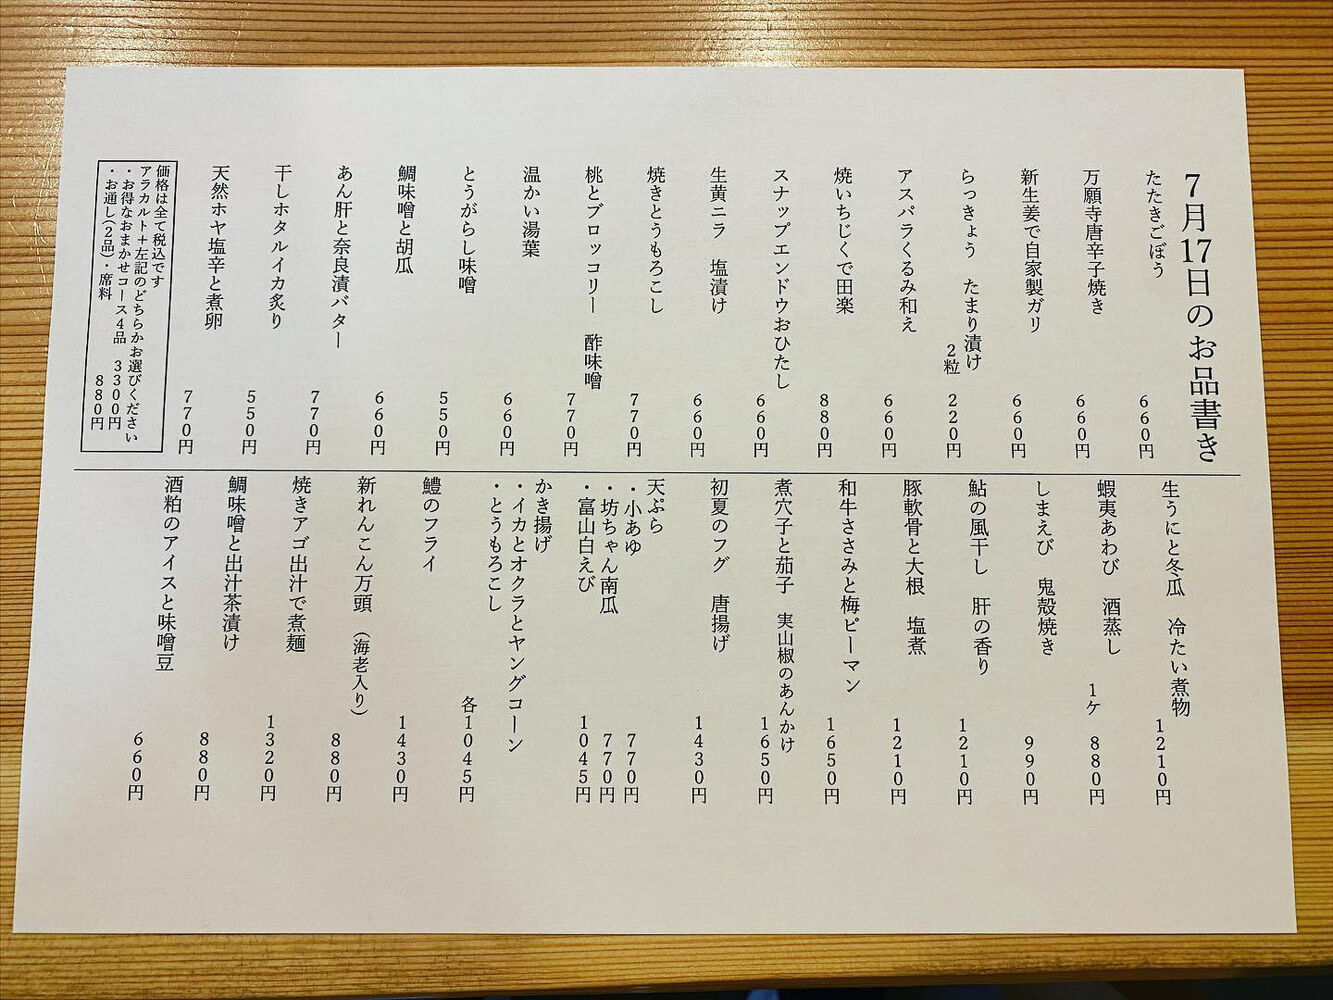 7月17日のお品書き
たたきごぼう 660円
万願寺唐辛子焼き 660円
新生姜で自家製ガリ 660円
らっきょう たまり漬け
2粒 220円
アスパラくるみ和え 660円
焼いちじくで田楽 880円
スナップエンドウおひたし 660円
生黄ニラ 塩漬け 660円
焼きとうもろこし 770円
桃とブロッコリー 酢味噌 770円
温かい湯葉 660円
とうがらし味噌 550円
鯛味噌と胡瓜 660円
あん肝と奈良漬バター 770円
干しホタルイカ炙り 550円
天然ホヤ塩辛と煮卵 770円
価格は全て税込です
アラカルト+左記のどちらかお選びください
・お得なおまかせコース4品 3300円
・お通し(2品)・席料 880円
生うにと冬瓜 冷たい煮物 1210円
蝦夷あわび 酒蒸し 1ケ 880円
しまえび 鬼殻焼き 990円
鮎の風干し 肝の香り 1210円
豚軟骨と大根 塩煮 1210円
和牛ささみと梅ピーマン 1650円
煮穴子と茄子 実山椒のあんかけ 1650円
初夏のフグ 唐揚げ 1430円
天ぷら
・小あゆ 770円
・坊ちゃん南瓜 770円
・富山白えび 1045円
かき揚げ
・イカとオクラとヤングコーン
・とうもろこし 各1045円
鱧のフライ 1430円
新れんこん万頭 (海老入り) 880円
焼きアゴ出汁で煮麺 1320円
鯛味噌と出汁茶漬け 880円
酒粕のアイスと味噌豆 660円